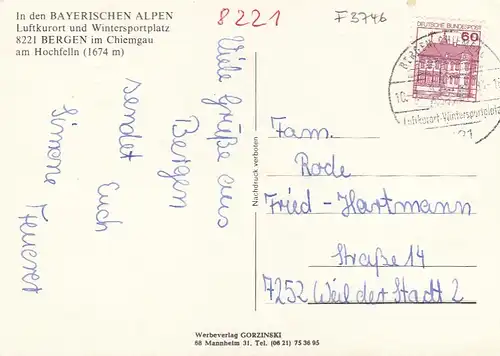 In den BAYERISCHEN ALPEN
Luftkurort und Wintersportplatz
8221 BERGEN im Chiemgau
am Hochfelln (1674 m)
8221
F3746
DEUTSCHE BUNDESPOST
60
BERGEN
Luftkurort-Wintersportplatz
Viele Grüße aus
Bergen
sendet Euch
Simone
Nachdruck verboten
Fam.
Rode
Fried-Hartmann
Straße 14
7252 Weil der Stadt 2
Werbeverlag GORZINSKI
68 Mannheim 31, Tel. (06 21) 75 36 95